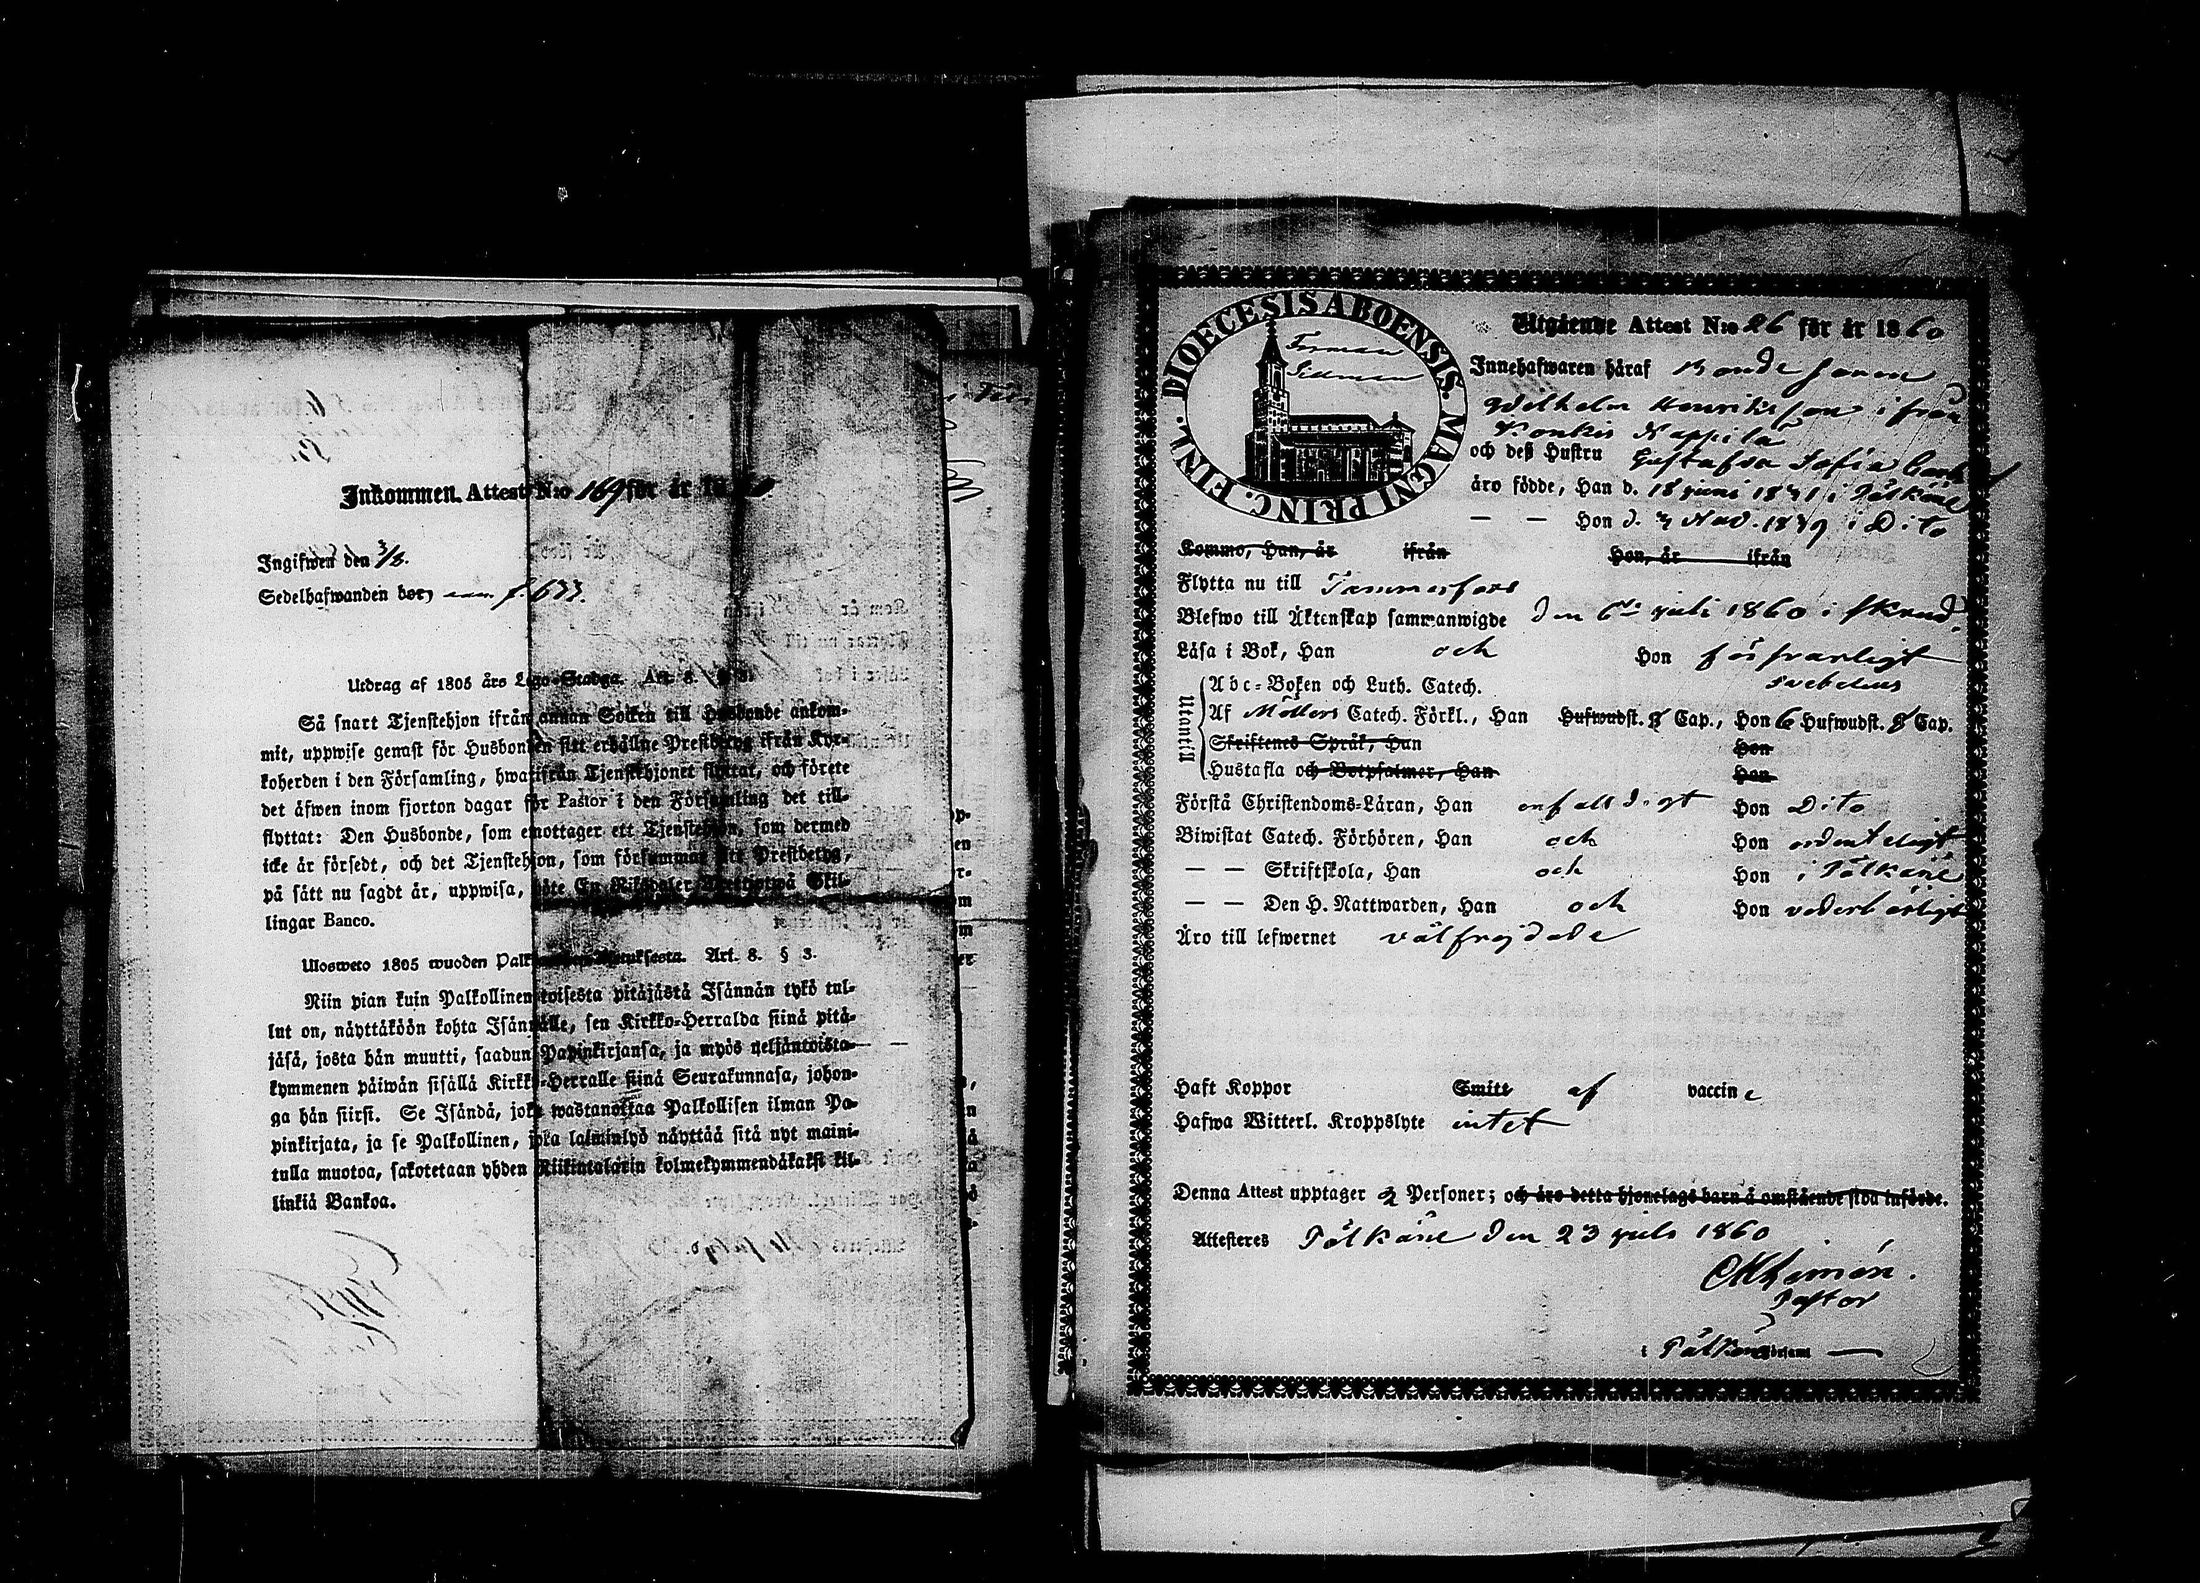 Inkommen Attest N:o 169 för år 1860.
Ingifwen den 3/8.
Sedelhafwanden bor, f. 633.
Utdrag af 1805 års Lego-Stadga. Art. 8.
Så snart Tjenstehjon ifrån annan Socken till Husbonde ankom-
mit, uppwise genast för Husbonden sitt erhållne Prestbetyg ifrån Kyr-
koherden i den Församling, hwarifrån Tjenstehjonet flyttat, och förete
det äfwen inom fjorton dagar för Pastor i den Församling det till-
flyttat: Den Husbonde, som emottager ett Tjenstehjon, som dermed
icke är försedt, och det Tjenstehjon, som försummar att Prestbetyg,
på sätt nu sagdt är, uppwisa, böte En Riksdaler Trettiotwå Skil-
lingar Banco.
Ulosweto 1805 wuoden Palkollisten Asetuksesta. Art. 8. § 3.
Niin pian kuin Palkollinen toisesta pitäjästä Isännän tykö tul-
lut on, näyttäköön kohta Isännälle, sen Kirkko-Herralda siinä pitä-
jäsä, josta hän muutti, saadun Papinkirjansa, ja myös neljäntoista-
kymmenen päiwän sisällä Kirkko-Herralle siinä Seurakunnasa, johon-
ga hän siirsi. Se Isändä, joka wastanottaa Palkollisen ilman Pa-
pinkirjata, ja se Palkollinen, joka laiminlyö näyttää sitä nyt maini-
tulla muotoa, sakotetaan yhden Riikintalarin kolmekymmendäkaksi kil-
linkiä Bankoa.
DIOECESIS ABOENSIS. MAGNI PRINC. FINL.
Utgående Attest N:o 26 för år 1860
Innehafwaren häraf Bonde Sonen
Wilhelm Henriksson ifrån
Konkis Kappila
och deß Hustru Gustafva Sofia
äro födde, Han d. 18 juni 1831 i Pälkäne
— — Hon d. 3 Nov. 1839 i Dito
Komme, Han, år ifrån Hon, år ifrån
Flytta nu till Tammerfors
Blefwo till Äktenskap sammanwigde den 6te juli 1860 i
Läsa i Bok, Han och Hon försvarligt
Abc-Boken och Luth. Catech. Svebelius
Utantill
Af Möllers Catech. Förkl., Han Hufwudst. 8 Cap., Hon 6 Hufwudst. 8 Cap.
Skriftenes Språk, Han Hon
Hustafla och Botpsalmer, Han Hon
Förstå Christendoms-Läran, Han enfalldigt Hon Dito
Biwistat Catech. Förhören, Han och Hon ordenteligt
— — Skriftskola, Han och Hon i Pälkäne
— — Den H. Nattwarden, Han och Hon vederbörligt
Äro till lefwernet välfrejdade
Haft Koppor Smitt af vaccine
Hafwa Witterl. Kroppslyte intet
Denna Attest upptager 2 Personer; och äro detta hjonelags barn å omstående sida införde.
Attesteres Pälkäne den 23 juli 1860
Pastor
i Pälkäne Församl